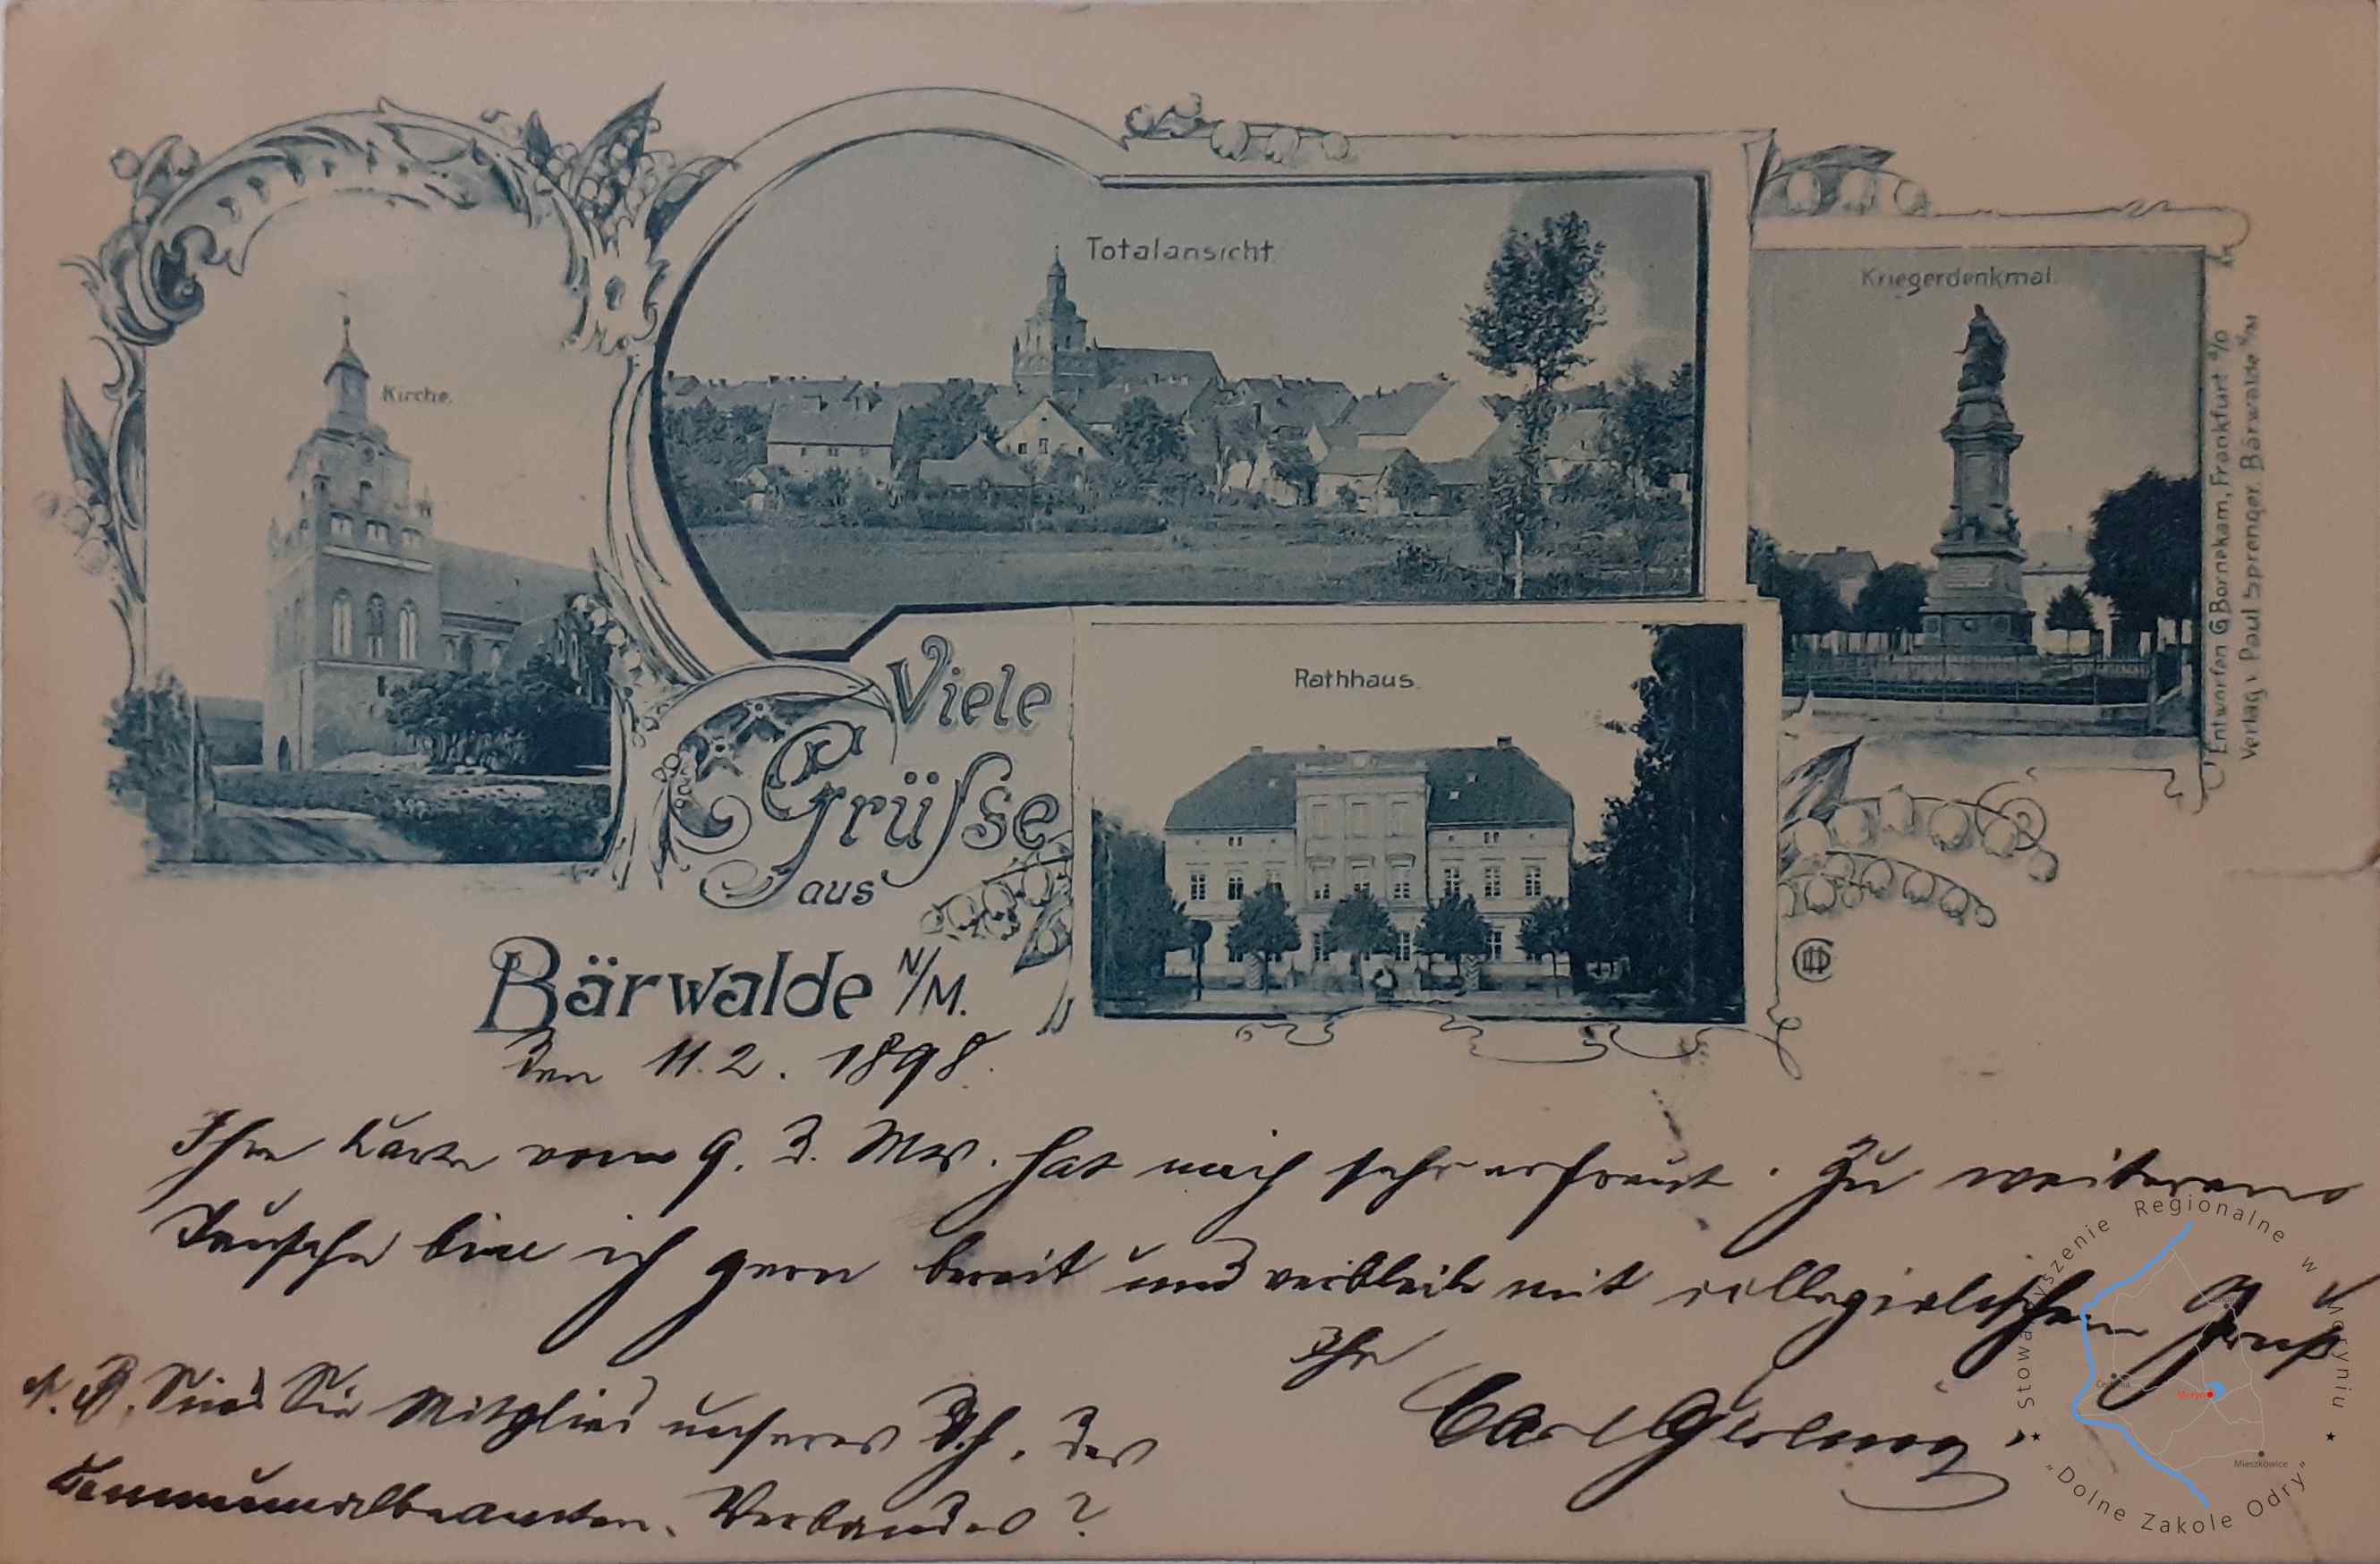 Kirche.
Totalansicht
Kriegerdenkmal.
Rathhaus.
Viele
Grüſse
aus
Bärwalde N/M.
Entworfen G Bornekam, Frankfurt a/O
Verlag v. Paul Sprenger, Bärwalde N/M
den 11. 2. 1898.
Ihre Karte vom 9. d. Mts. hat mich sehr erfreut. Zu weiterem
Tausche bin ich gern bereit und verbleibe mit collegialischem Gruß
Ihr
Carl
N. B. Sind Sie Mitglied unseres des
Kommunalbeamten-Verbandes?
Stowarzyszenie Regionalne w Moryniu
"Dolne Zakole Odry"
Cedynia
Moryń
Mieszkowice